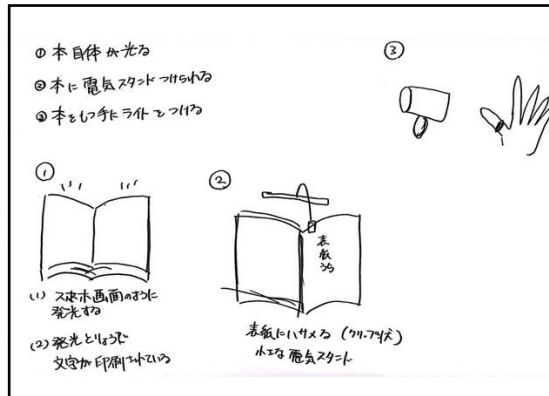 ① 本自体が光る
② 本に電気スタンドつけられる
③ 本をもつ手にライトをつける
①
(1) スマホ画面のように
発光する
(2) 発光とりょうで
文字が印刷されている
②
表紙うら
表紙にハサメる (クリップ状)
小さな電気スタンド
③